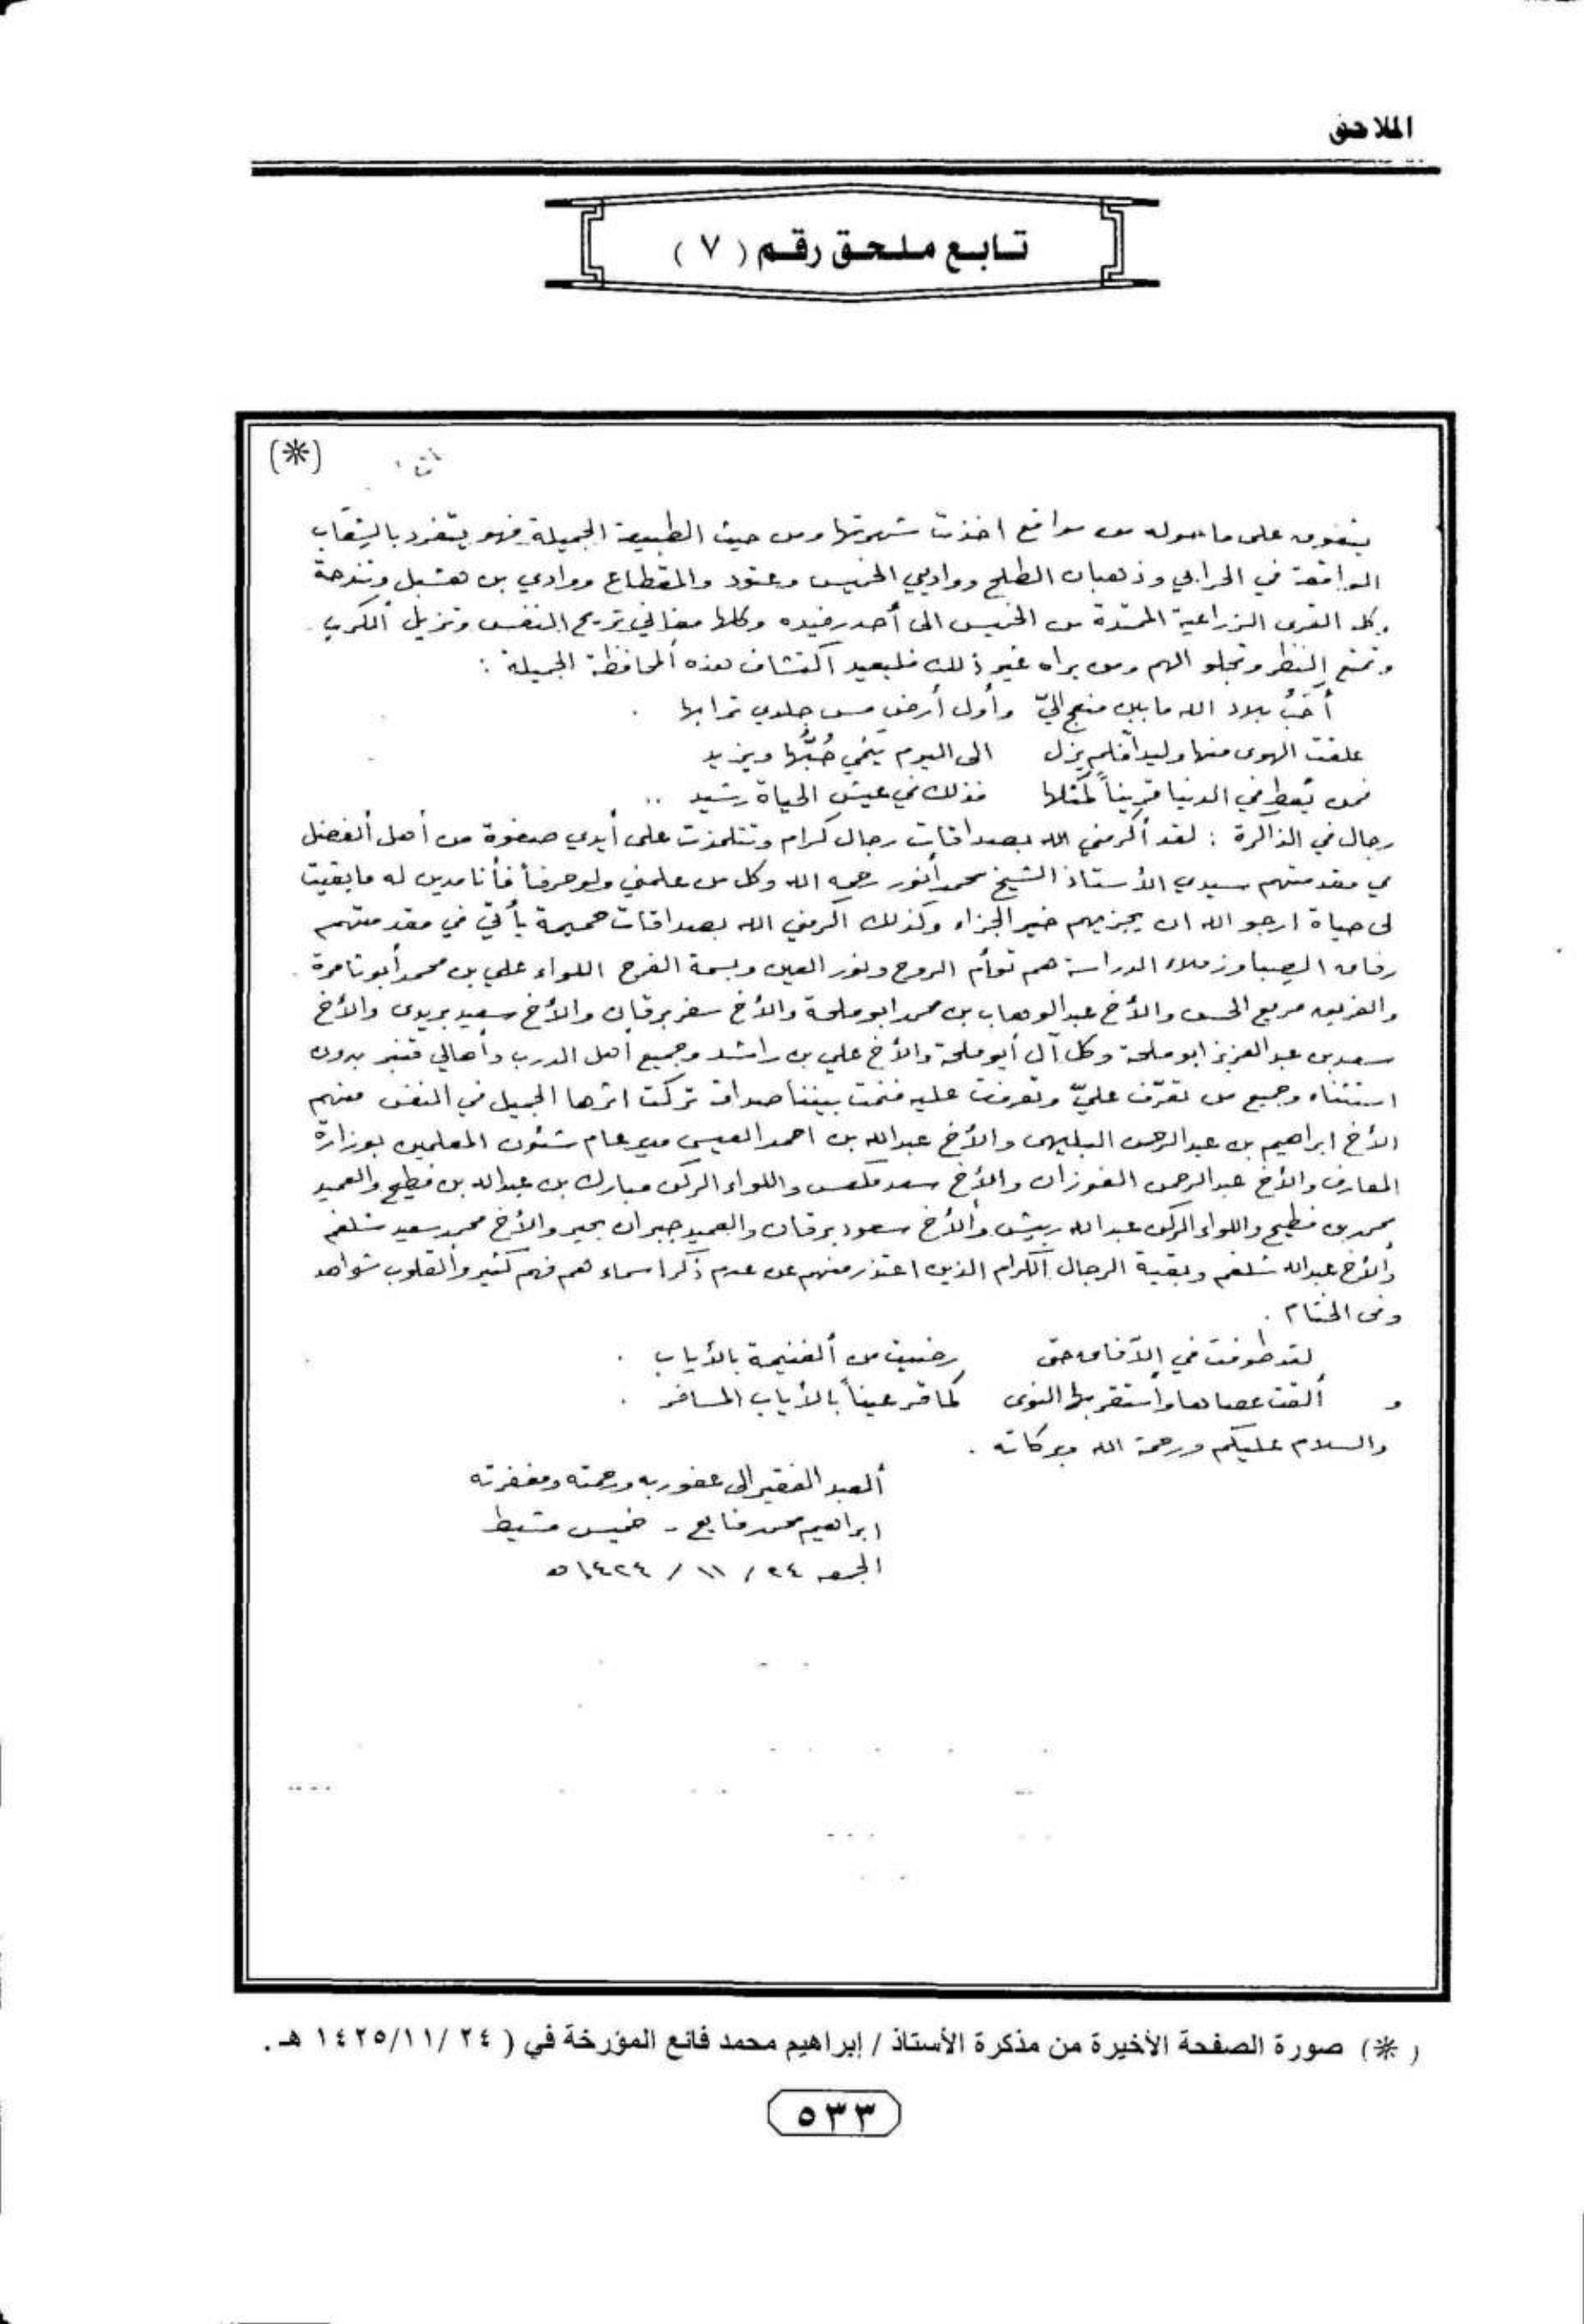 الملاحق
تابع ملحق رقم ( ٧ )
(*)
على ما حوله من مواقع اخذت شهرتها ومن حيث الطبيعة الجميلة فهو يتفرد بالشعاب
الواقعة في الحرابي وذهبان الطلح وواديي الخميس وعتود والمقطاع ووادي بن هشبل وتندحة
وكل القرى الزراعية الممتدة من الخميس الى أحد رفيده وكلها مغاني تريح النفس وتزيل الكرب
وتمتع النظر وتجلو الهم ومن يراه غير ذلك فليعيد اكتشاف هذه المحافظة الجميلة :
أحَبُّ بلاد الله ما بين منعج اليّ وأول أرض مس جلدي ترابها .
علقت الهوى منها وليداً فلم يزل الى اليوم ينمي حُبُّها ويزيد
فمن يُعط في الدنيا قريناً كمثلها فذلك في عيش الحياة رشيد ..
رجال في الذاكرة : لقد أكرمني الله بصداقات رجال كرام وتتلمذت على أيدي صفوة من أهل الفضل
في مقدمتهم سيدي الأستاذ الشيخ محمد أنور رحمه الله وكل من علمني ولو حرفاً فأنا مدين له ما بقيت
لى حياة ارجو الله ان يجزيهم خير الجزاء وكذلك اكرمني الله بصداقات حميمة يأتي في مقدمتهم
رفاق الصبا وزملاء الدراسة هم توأم الروح ونور العين وبسمة الفرح اللواء علي بن محمد أبو تامرة
والفريق مريع الحسن والأخ عبدالوهاب بن محمد ابو ملحة والأخ سفر برقان والأخ سعيد بريدى والأخ
سعد بن عبدالعزيز ابو ملحة وكل آل أبو ملحة والأخ علي بن راشد وجميع اهل الدرب وأهالي قنبر بدون
استثناء وجميع من تعرّف عليّ وتعرفت عليه فنمت بيننا صداقة تركت اثرها الجميل في النفس منهم
الأخ ابراهيم بن عبدالرحمن البليهى والأخ عبدالله بن احمد العيسى مدير عام شئون المعلمين بوزارة
المعارف والأخ عبدالرحمن الفوزان والأخ سعد واللواء الركن مبارك بن عبدالله بن فطيح والعميد
محمد بن فطيح واللواء الركن عبدالله ربيش والأخ سعود برقان والعميد جبران بحير والأخ محمد سعيد شلغم
والأخ عبدالله شلغم وبقية الرجال الكرام الذين اعتذر منهم عن عدم ذكر اسماءهم فهم كثير والقلوب شواهد
وفى الختام .
لقد طوفت في الآفاق حتى رضيت من الغنيمة بالأياب .
و ألقت عصاها وأستقر بها النوى كما قر عيناً بالأياب المسافر .
والسلام عليكم ورحمة الله وبركاته .
ألعبد الفقير الى عفو ربه ورحمته ومغفرته
ابراهيم محمد فايع - خميس مشيط
الجمعه ٢٤ / ١١ / ١٤٢٤ هـ
( * ) صورة الصفحة الأخيرة من مذكرة الأستاذ / إبراهيم محمد فائع المؤرخة في ( ٢٤ /١١/ ١٤٢٥ هـ .
٥٣٣